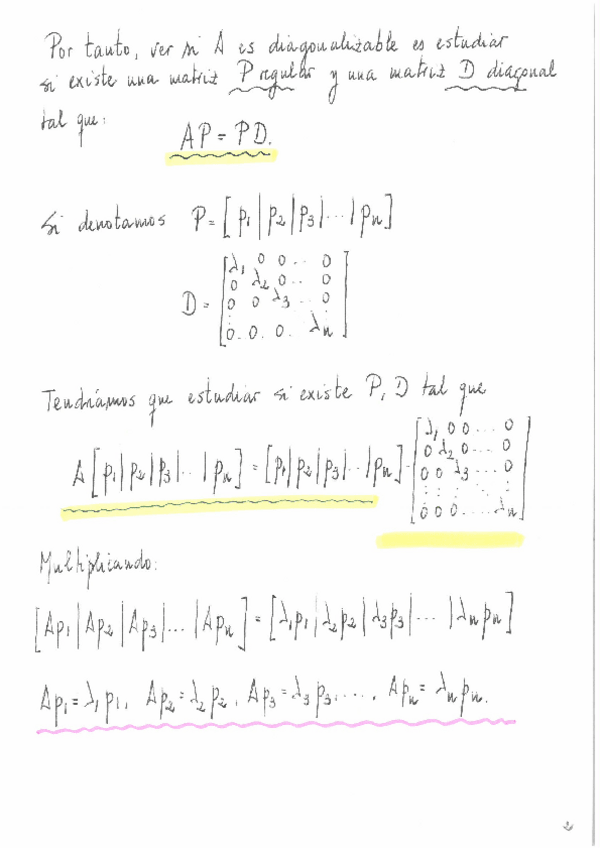 Por tanto, ver si A es diagonalizable es estudiar
si existe una matriz P regular y una matriz D diagonal
tal que:
AP = PD.
Si denotamos P = [ p₁ | p₂ | p₃ | ... | pₙ ]
D = [ λ₁ 0 0 .. 0
0 λ₂ 0 .. 0
0 0 λ₃ ... 0
⋮
0. 0. 0. λₙ ]
Tendríamos que estudiar si existe P, D tal que
A [ p₁ | p₂ | p₃ | ... | pₙ ] = [ p₁ | p₂ | p₃ | ... | pₙ ] · [ λ₁ 0 0 .... 0
0 λ₂ 0 .... 0
0 0 λ₃ ... 0
. . . . . .
0 0 0 .... λₙ ]
Multiplicando:
[ Ap₁ | Ap₂ | Ap₃ | ... | Apₙ ] = [ λ₁p₁ | λ₂p₂ | λ₃p₃ | ... | λₙpₙ ]
Ap₁ = λ₁p₁, Ap₂ = λ₂p₂, Ap₃ = λ₃p₃, ...., Apₙ = λₙpₙ.